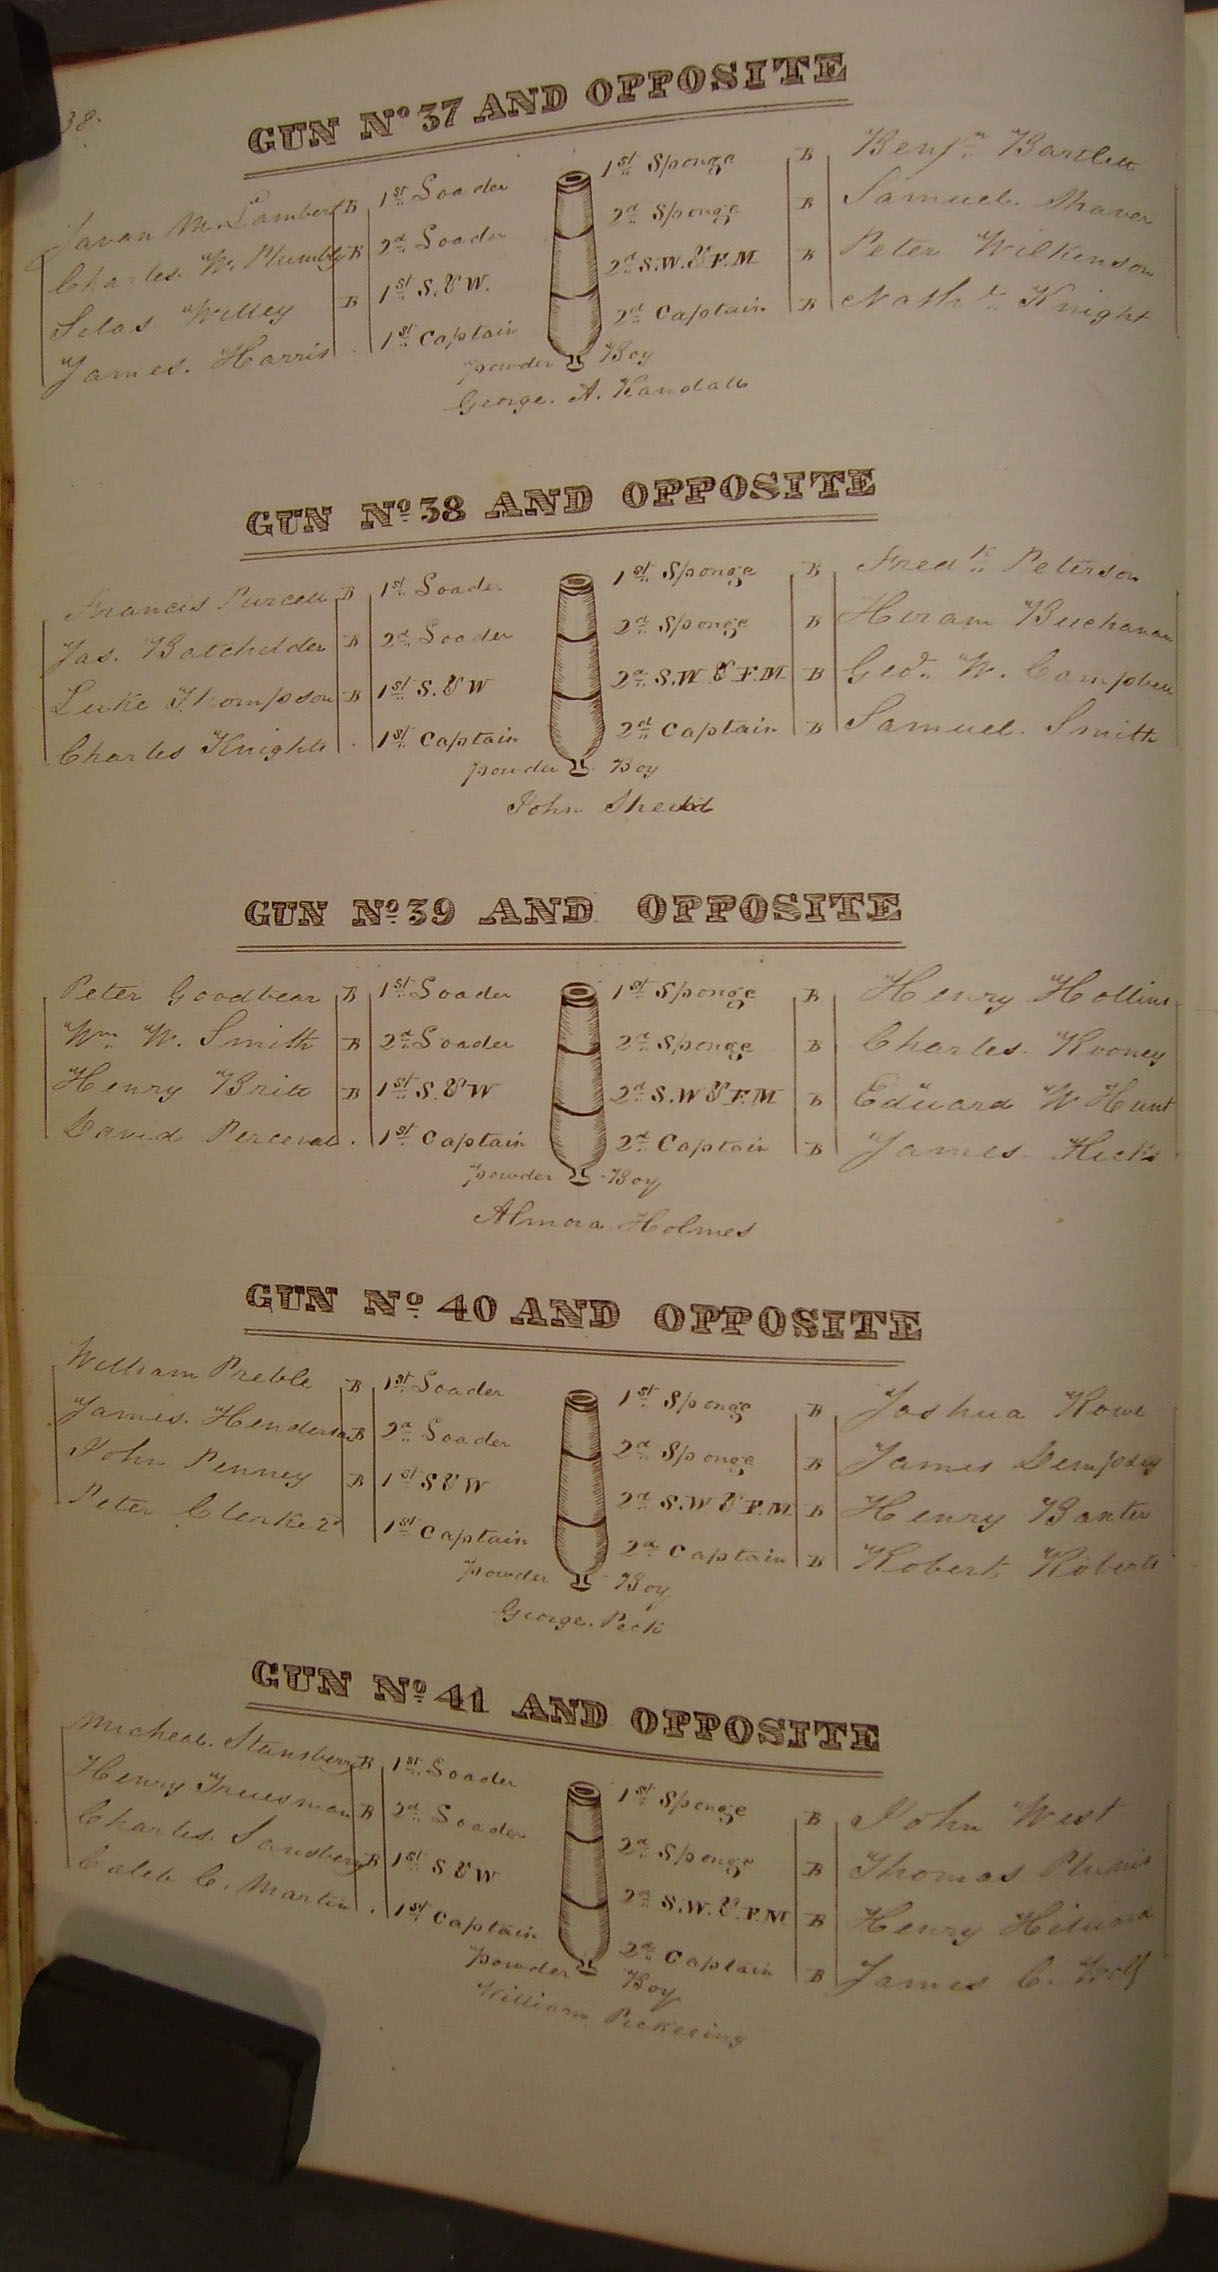 38.
GUN No. 37 AND OPPOSITE
Javan M. Lambert B 1st Loader 1st Sponge B Benjn. Bartlett
Charles. W. Plumbly B 2d Loader 2d Sponge B Samuel. Shaver
Silas Willey B 1st S. & W. 2d S.W. & F.M B Peter Wilkinson
James. Harris . 1st Captain 2d Captain B Nathl. Knight
Powder Boy
George. A. Randall
GUN No. 38 AND OPPOSITE
Francis Purcell B 1st Loader 1st Sponge B Fredk. Peterson
Jas. Batchelder B 2d Loader 2d Sponge B Hiram Buchanan
Luke Thompson B 1st S. & W 2d S.W & F.M B Geo. W. Campbell
Charles Knights . 1st Captain 2d Captain B Samuel. Smith
Powder Boy
John Shedd
GUN No. 39 AND OPPOSITE
Peter Goodbear B 1st Loader 1st Sponge B Henry Hollins
Wm. W. Smith B 2d Loader 2d Sponge B Charles. Rooney
Henry Britt B 1st S. & W 2d S.W & F.M B Edward W Hunt
David Perceval . 1st Captain 2d Captain B James. Hicks
Powder Boy
Almora Holmes
GUN No. 40 AND OPPOSITE
William Preble B 1st Loader 1st Sponge B Joshua Rowe
James. Henderson B 2d Loader 2d Sponge B James Dempsey
John Penney B 1st S & W 2d S.W & F.M B Henry Baxter
Peter Clerke 2d 1st Captain 2d Captain B Robert Roberts
Powder Boy
George. Peck
GUN No. 41 AND OPPOSITE
Micheal. Stansberry B 1st Loader 1st Sponge B John West
Henry Truesman B 2d Loader 2d Sponge B Thomas
Charles. Sandberg B 1st S & W 2d S.W. & F.M B Henry
Caleb C. Martin . 1st Captain 2d Captain B James C. Wolf
Powder Boy
William Pickering